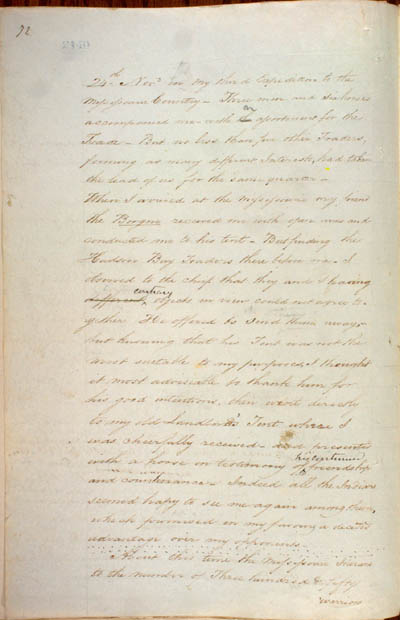 72
24th Novr on my third Expedition to the
Mississoury Country - Three men and six horses
accompanied me with an assortment for the
Trade - But no less than five other Traders,
forming as many different Interests, had taken
the lead of us for the same quarter -
When I arrived at the Missisourie my friend
the Borgne received me with open arms and
conducted me to his tent - But finding the
Hudson Bay Traders there before me - I
observed to the chief that they and I having
different contrary objects in view could not agree to-
gether He offered to send them away
but knowing that his Tent was not the
most suitable to my purposes, I thought
it most adviseable to thank him for
his good intentions, then went directly
to my old Landlord's Tent where I
was cheerfully received and presented
with a horse in testimony of his continued friendship
and countenance - Indeed all the Indians
seemed happy to see me again among them,
which promised in my favour a decided
advantage over my opponents -
About this time the Missisourie Indians
to the number of Three hundred & fifty
warriors